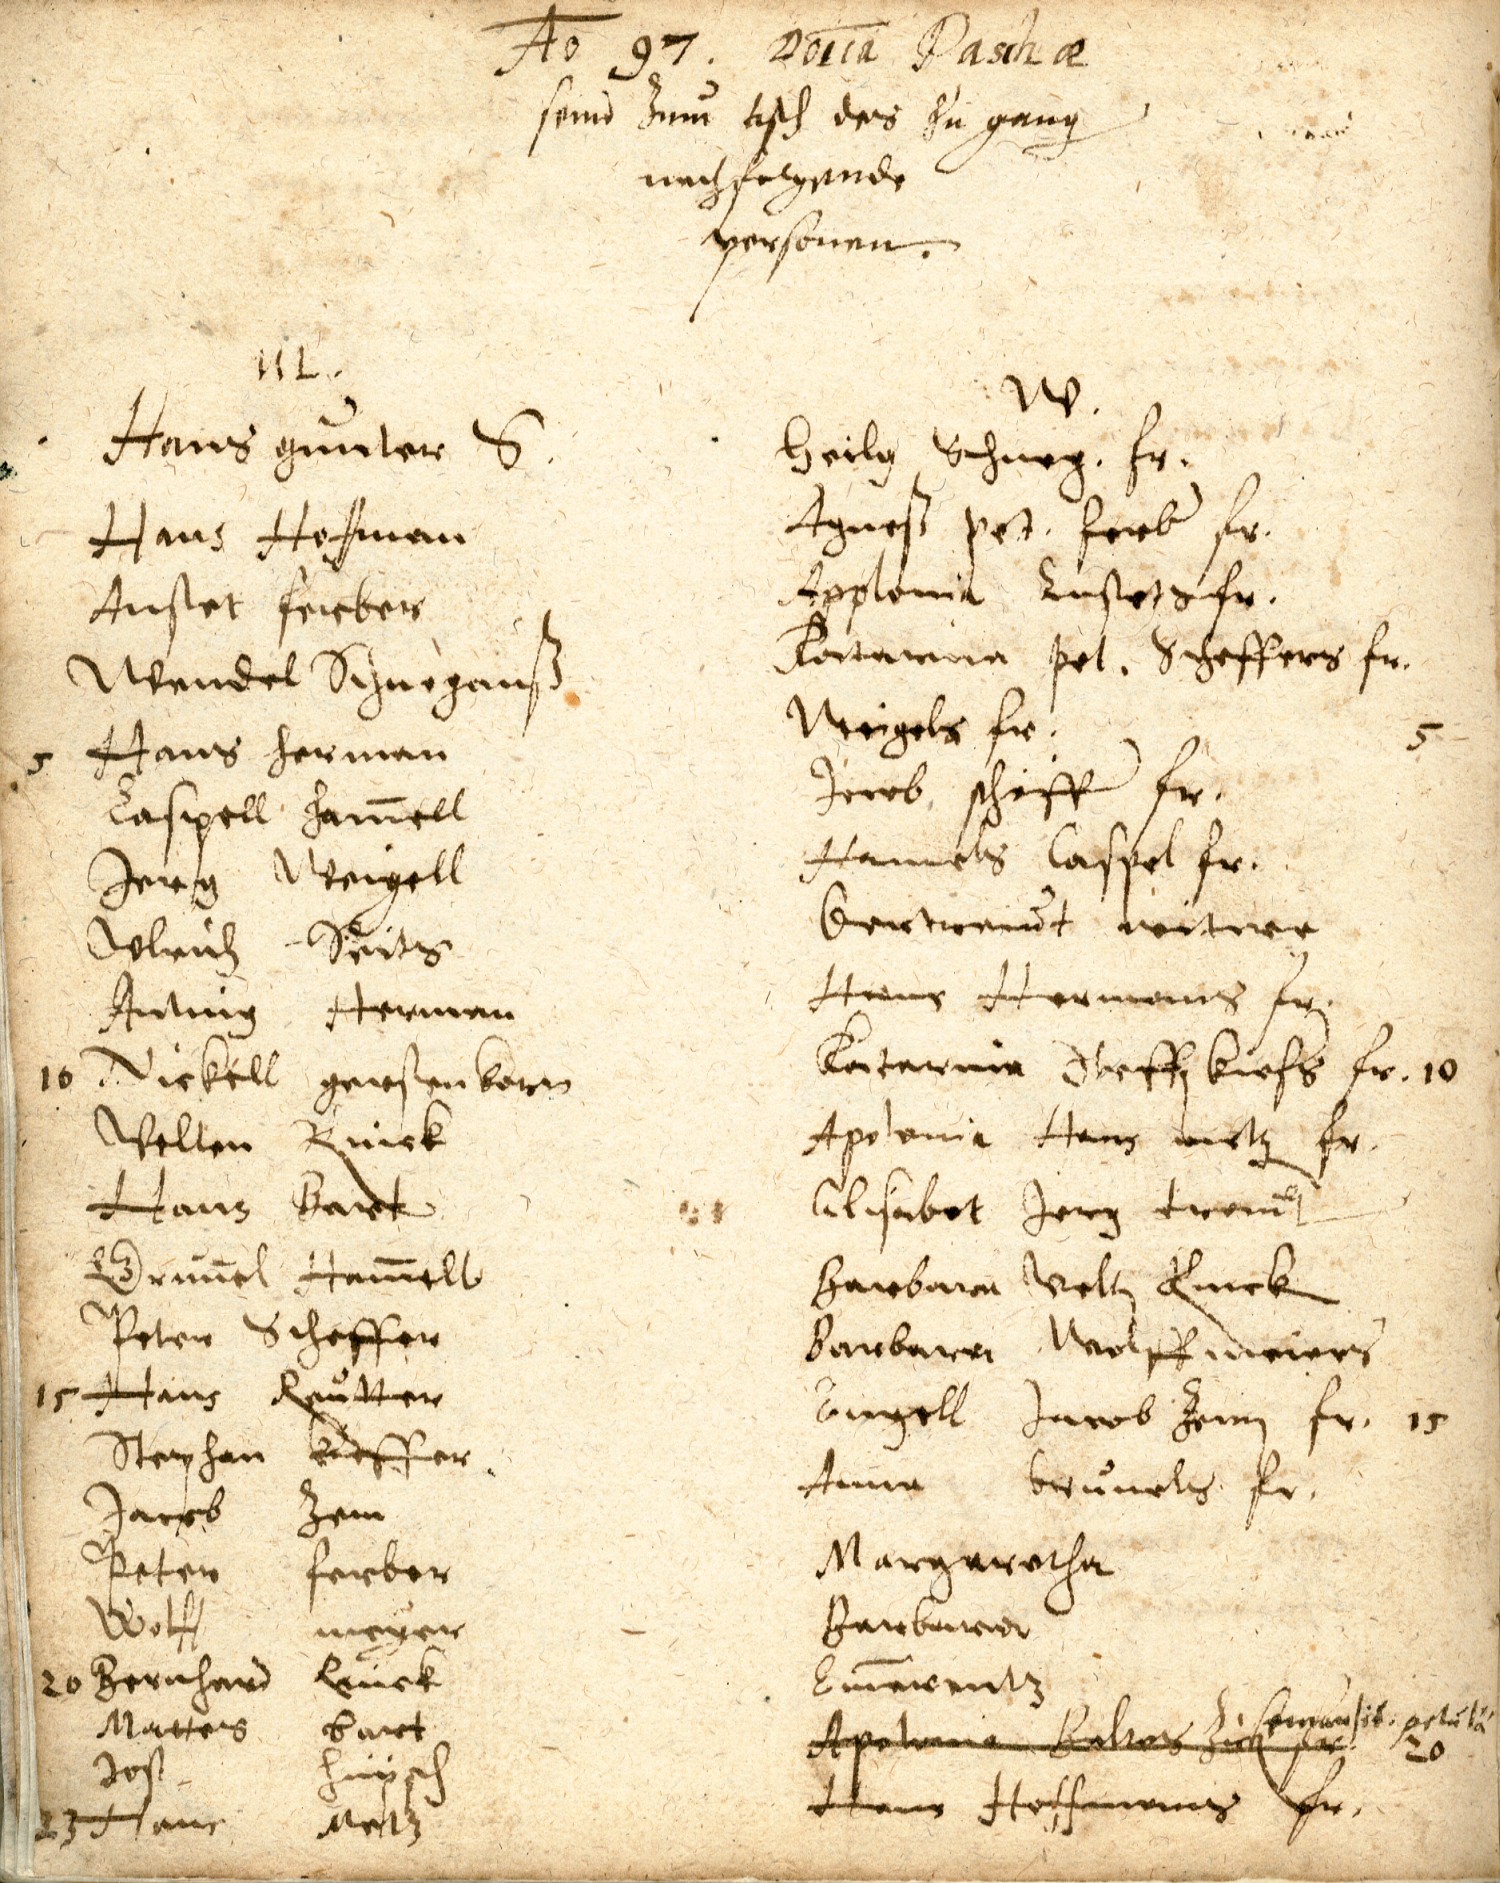 Ao 97. Doica Paschæ
seind zum tisch des hn gang
nachfolgende
personen.
M.
Hans gunter S.
Hans Hofman
Anstet ferber
Wendel Schnegauß
5 Hans herman
Caspell hamell
Jerg Weigell
Ulrich Seits
Anting Herman
10 Nickell gerstenkorn
Velten Ruick
Hans bart
Brumel Hamell
Peter Scheffer
15 Hans Reutter
Stephan kieffer.
Jacob Zem
Peter ferber
Wolff meyer
20 Bernhard Ruick
Mattes bart
Jost hüpsch
23 Hans Metz
W.
Heilg Schneg. fr.
Agneß pet. ferb fr.
Applonia Enstets fr.
Katarina pet. Scheffers fr.
Weigels fr. 5
Jacob scheff fr.
Hamels Caspel fr.
Gertraut
Hans Hermans fr.
Katarina Steff kiefs fr. 10
Apolonia Hans metz fr.
Elisabet Jerg
Barbara Velt Ruick
Barbara Wolff meiers
Engell Jacob Zem fr. 15
Anna brumels fr.
Margaretha
Barbara
Emerentz
Apolonia Baltes fr. 20
Hans Hoffmans fr.